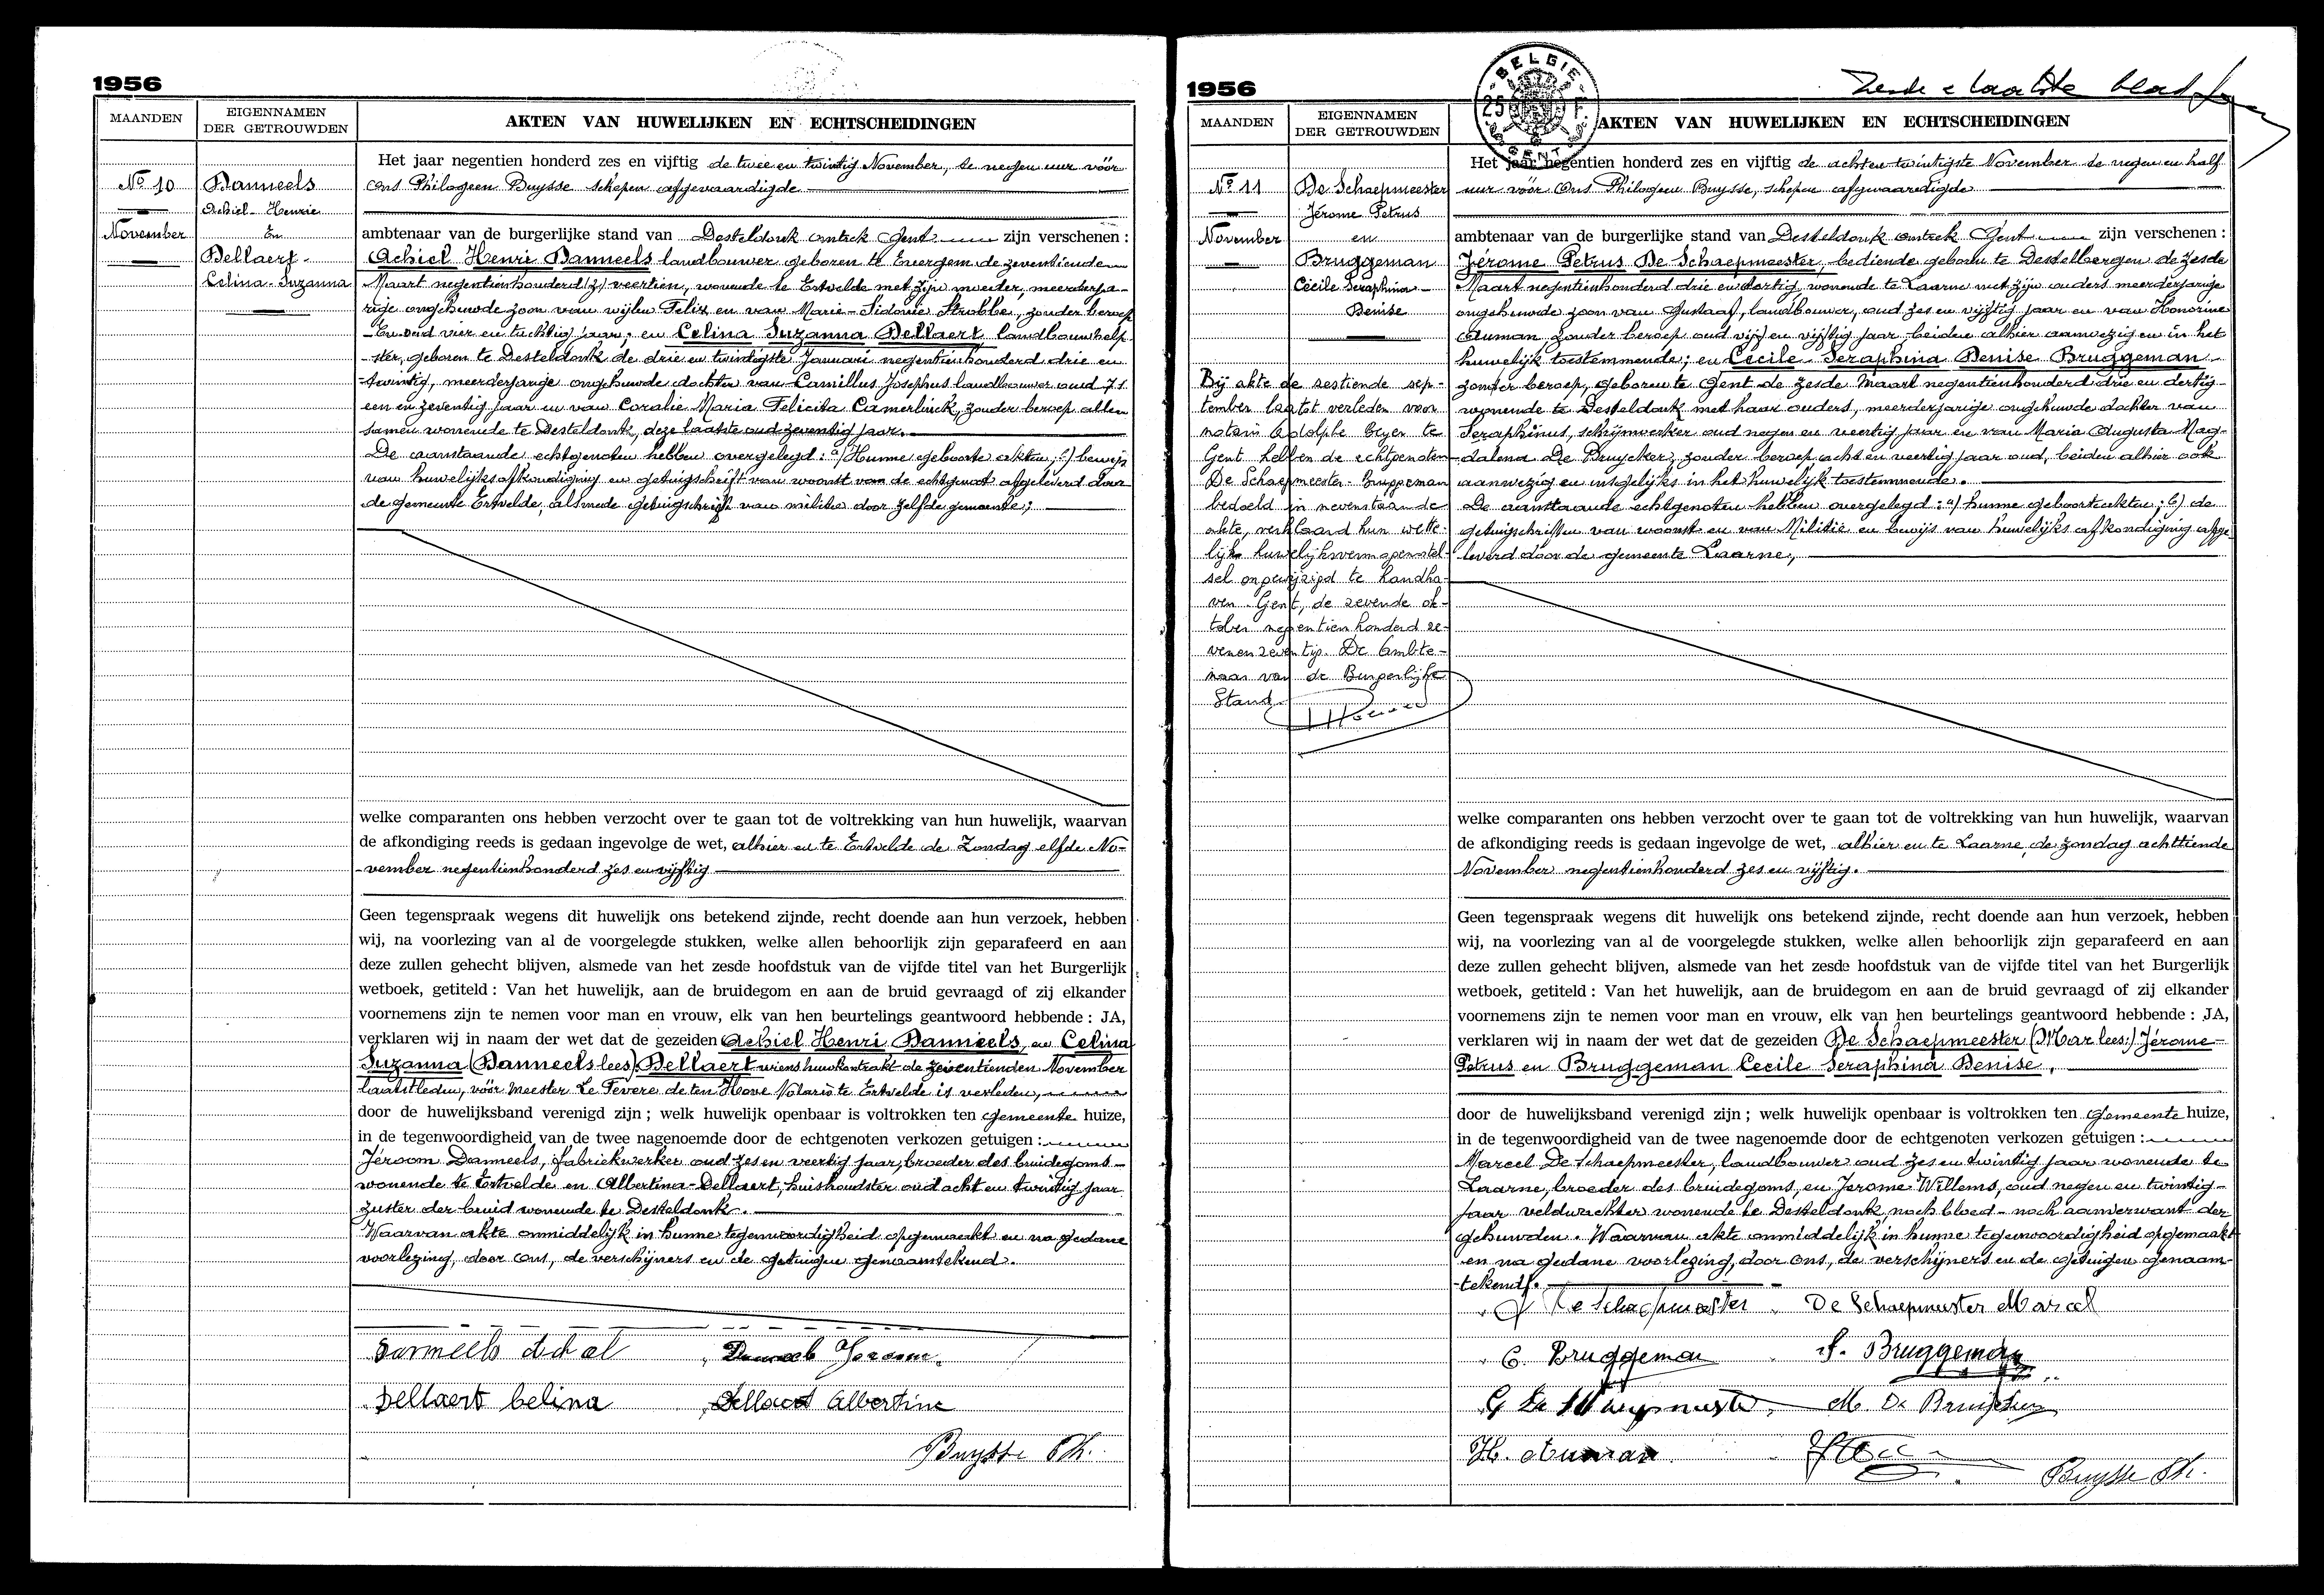 1956
MAANDEN
EIGENNAMEN
DER GETROUWDEN
AKTEN VAN HUWELIJKEN EN ECHTSCHEIDINGEN
No 10
November
Danneels
Achiel-Henrie
En
Dellaert-
Celina-Suzanna
Het jaar negentien honderd zes en vijftig de twee en twintig November, te negen uur vóór
Ons Philogeen Buysse schepen afgevaardigde
ambtenaar van de burgerlijke stand van Desteldonk omtrek Gent zijn verschenen :
Achiel Henri Danneels landbouwer geboren te Evergem de zeventiende
Maart negentienhonderd veertien, wonende te Ertvelde met zijn moeder, meerderja-
rige ongehuwde zoon van wijlen Felix en van Marie-Sidonie Strobbe, zonder beroep
oud vier en tachtig jaar; en Celina Suzanna Dellaert landbouwhelp-
-ster, geboren te Desteldonk de drie en twintigste Januari negentienhonderd drie en
-twintig, meerderjarige ongehuwde dochter van Camillus Josephus landbouwer oud 71
een en zeventig jaar en van Coralie Maria Felicita Camerlinck, zonder beroep allen
samen wonende te Desteldonk, deze laatste oud zeventig jaar.
De aanstaande echtgenoten hebben overgelegd: a) Hunne geboorte akten; b) bewijs
van huwelijksafkondiging en getuigschrift van woonst van de echtgenoot afgeleverd door
de gemeente Ertvelde, alsmede getuigschrift van militie door zelfde gemeente;
welke comparanten ons hebben verzocht over te gaan tot de voltrekking van hun huwelijk, waarvan
de afkondiging reeds is gedaan ingevolge de wet, alhier en te Ertvelde de Zondag elfde No-
-vember negentienhonderd zes en vijftig
Geen tegenspraak wegens dit huwelijk ons betekend zijnde, recht doende aan hun verzoek, hebben
wij, na voorlezing van al de voorgelegde stukken, welke allen behoorlijk zijn geparafeerd en aan
deze zullen gehecht blijven, alsmede van het zesde hoofdstuk van de vijfde titel van het Burgerlijk
wetboek, getiteld : Van het huwelijk, aan de bruidegom en aan de bruid gevraagd of zij elkander
voornemens zijn te nemen voor man en vrouw, elk van hen beurtelings geantwoord hebbende : JA,
verklaren wij in naam der wet dat de gezeiden Achiel Henri Danneels, en Celina
Suzanna (Danneels lees) Dellaert wiens huwkontrakt de zeventienden November
laatstleden, vóór Meester Le Fevere de ten Hove Notaris te Ertvelde is verleden,
door de huwelijksband verenigd zijn ; welk huwelijk openbaar is voltrokken ten Gemeente huize,
in de tegenwoordigheid van de twee nagenoemde door de echtgenoten verkozen getuigen :
Jéroom Danneels, fabriekwerker oud zes en veertig jaar, broeder des bruidegoms-
wonende te Ertvelde en Albertina-Dellaert, huishoudster oud acht en twintig jaar
zuster der bruid wonende te Desteldonk.
Waarvan akte onmiddelijk in hunne tegenwoordigheid opgemaakt en na gedane
voorlezing, door Ons, de verschijners en de getuigen genaamtekend.
Danneels Achiel
Danneels Jeroom
Dellaert Celina
Dellaert Albertine
Buysse Ph.
1956
BELGIE
Zesde & laatste blad
MAANDEN
EIGENNAMEN
DER GETROUWDEN
AKTEN VAN HUWELIJKEN EN ECHTSCHEIDINGEN
No 11
November
De Schaepmeester
Jérome Petrus
en
Bruggeman
Cécile Seraphina
Denise
Bij akte de zestiende sep-
tember laatst verleden voor
notaris Adolphe Geyer te
Gent hebben de echtgenoten
De Schaepmeester-Bruggeman
bedoeld in nevenstaande
akte, verklaard hun wette-
lijke huwelijksvermogenstel-
sel ongewijzigd te handha-
ven. Gent, de zevende ok-
tober negentien honderd ze-
venenzeventig. De Ambte-
naar van de Burgerlijke
Stand
Het jaar negentien honderd zes en vijftig de achten twintigste November te negen en half
uur vóór Ons Philogeen Buysse, schepen afgevaardigde
ambtenaar van de burgerlijke stand van Desteldonk omtrek Gent zijn verschenen :
Jérome Petrus De Schaepmeester, bediende geboren te Destelbergen de zesde
Maart negentienhonderd drie en dertig wonende te Laarne met zijn ouders meerderjarige
ongehuwde zoon van Gustaaf, landbouwer, oud zes en vijftig jaar en van Honorine
Auman zonder beroep oud vijf en vijftig jaar beiden alhier aanwezig en in het
huwelijk toestemmende; en Cecile Seraphina Denise Bruggeman-
zonder beroep, geboren te Gent de zesde Maart negentienhonderd drie en dertig-
wonende te Desteldonk met haar ouders, meerderjarige ongehuwde dochter van
Seraphinus, schrijnwerker oud negen en veertig jaar en van Maria Augusta Mag-
dalena De Bruycker, zonder beroep acht en veertig jaar oud, beiden alhier ook
aanwezig en insgelijks in het huwelijk toestemmende.
De aanstaande echtgenoten hebben overgelegd: a) hunne geboorteakten; b) de
getuigschriften van woonst en van Militie en bewijs van huwelijksafkondiging afge-
leverd door de gemeente Laarne;
welke comparanten ons hebben verzocht over te gaan tot de voltrekking van hun huwelijk, waarvan
de afkondiging reeds is gedaan ingevolge de wet, alhier en te Laarne, de zondag achttiende
November negentienhonderd zes en vijftig.
Geen tegenspraak wegens dit huwelijk ons betekend zijnde, recht doende aan hun verzoek, hebben
wij, na voorlezing van al de voorgelegde stukken, welke allen behoorlijk zijn geparafeerd en aan
deze zullen gehecht blijven, alsmede van het zesde hoofdstuk van de vijfde titel van het Burgerlijk
wetboek, getiteld : Van het huwelijk, aan de bruidegom en aan de bruid gevraagd of zij elkander
voornemens zijn te nemen voor man en vrouw, elk van hen beurtelings geantwoord hebbende : JA,
verklaren wij in naam der wet dat de gezeiden De Schaepmeester (Mar lees:) Jérome-
Petrus en Bruggeman Cecile Seraphina Denise,
door de huwelijksband verenigd zijn ; welk huwelijk openbaar is voltrokken ten Gemeente huize,
in de tegenwoordigheid van de twee nagenoemde door de echtgenoten verkozen getuigen :
Marcel De Schaepmeester, landbouwer oud zes en twintig jaar wonende te
Laarne, broeder des bruidegoms, en Jerome Willems, oud negen en twintig-
jaar veldwachter wonende te Desteldonk noch bloed- noch aanverwant der
gehuwden. Waarvan akte onmiddelijk in hunne tegenwoordigheid opgemaakt
en na gedane voorlezing, door Ons, de verschijners en de getuigen genaam-
tekend.
J De Schaepmeester
De Schaepmeester Marcel
C. Bruggeman
S. Bruggeman
G De Schaepmeester
M. De Bruycker
H. Auman
Buysse Ph.